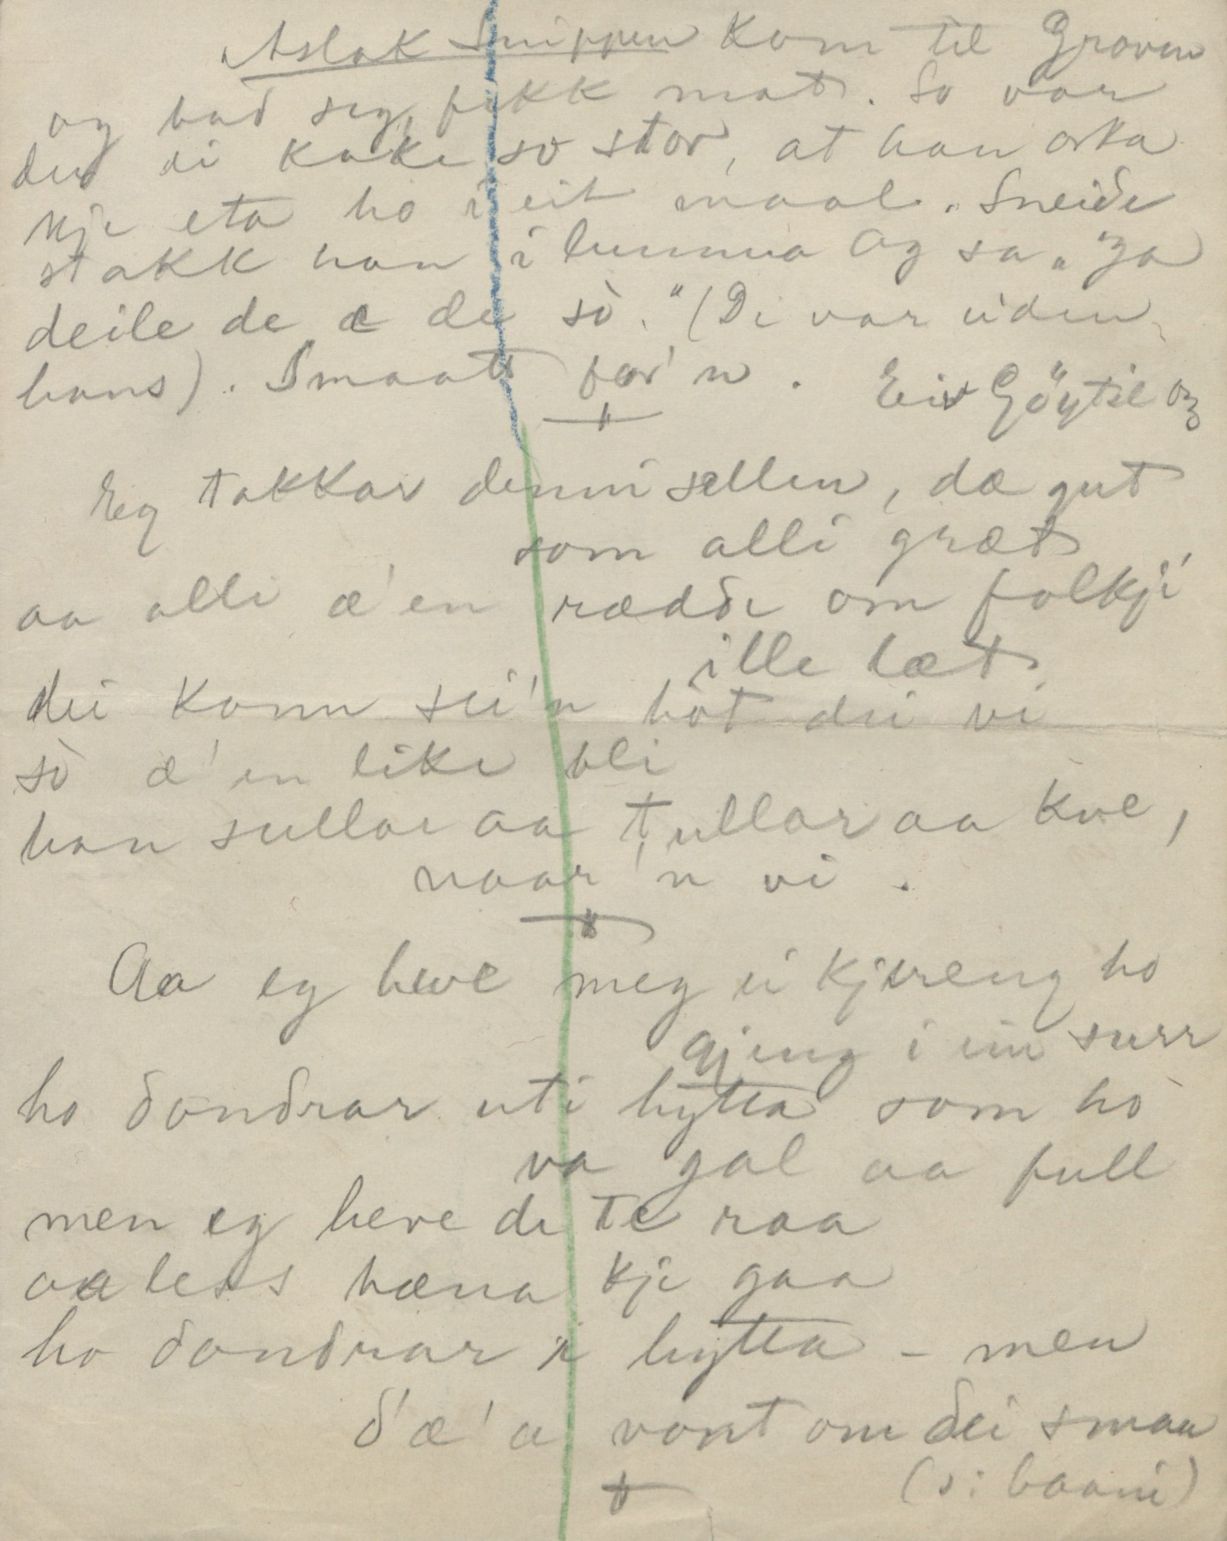 Aslak Snippen kom til Groven
og bad seg, fekk mat. So var
der ei kake so stor, at han orka
kje eta ho i eit maal. Sneide
stakk han i lumma og sa "Ja
deile de æ de sò." (De var uiden
hans). Smaatt for'n. Eiv Göytil og
Eg takkar denni sellen, dæ gut
som alli græt
aa alli æ'en rædde om folkji
ille læt
dei kann sei'n hòt dei vi
sò æ'en like bli
han sullar aa tullar aa kve,
naar'n vi.
Aa eg heve meg ei kjæreng ho
gjeng i ein surr
ho dondrar uti hytta som ho
va gal aa full
men eg heve de te raa
aa less hæna kje gaa
ho dondrar i hytta - men
d'æ'a vont om dei smaa
(ɔ: baani)